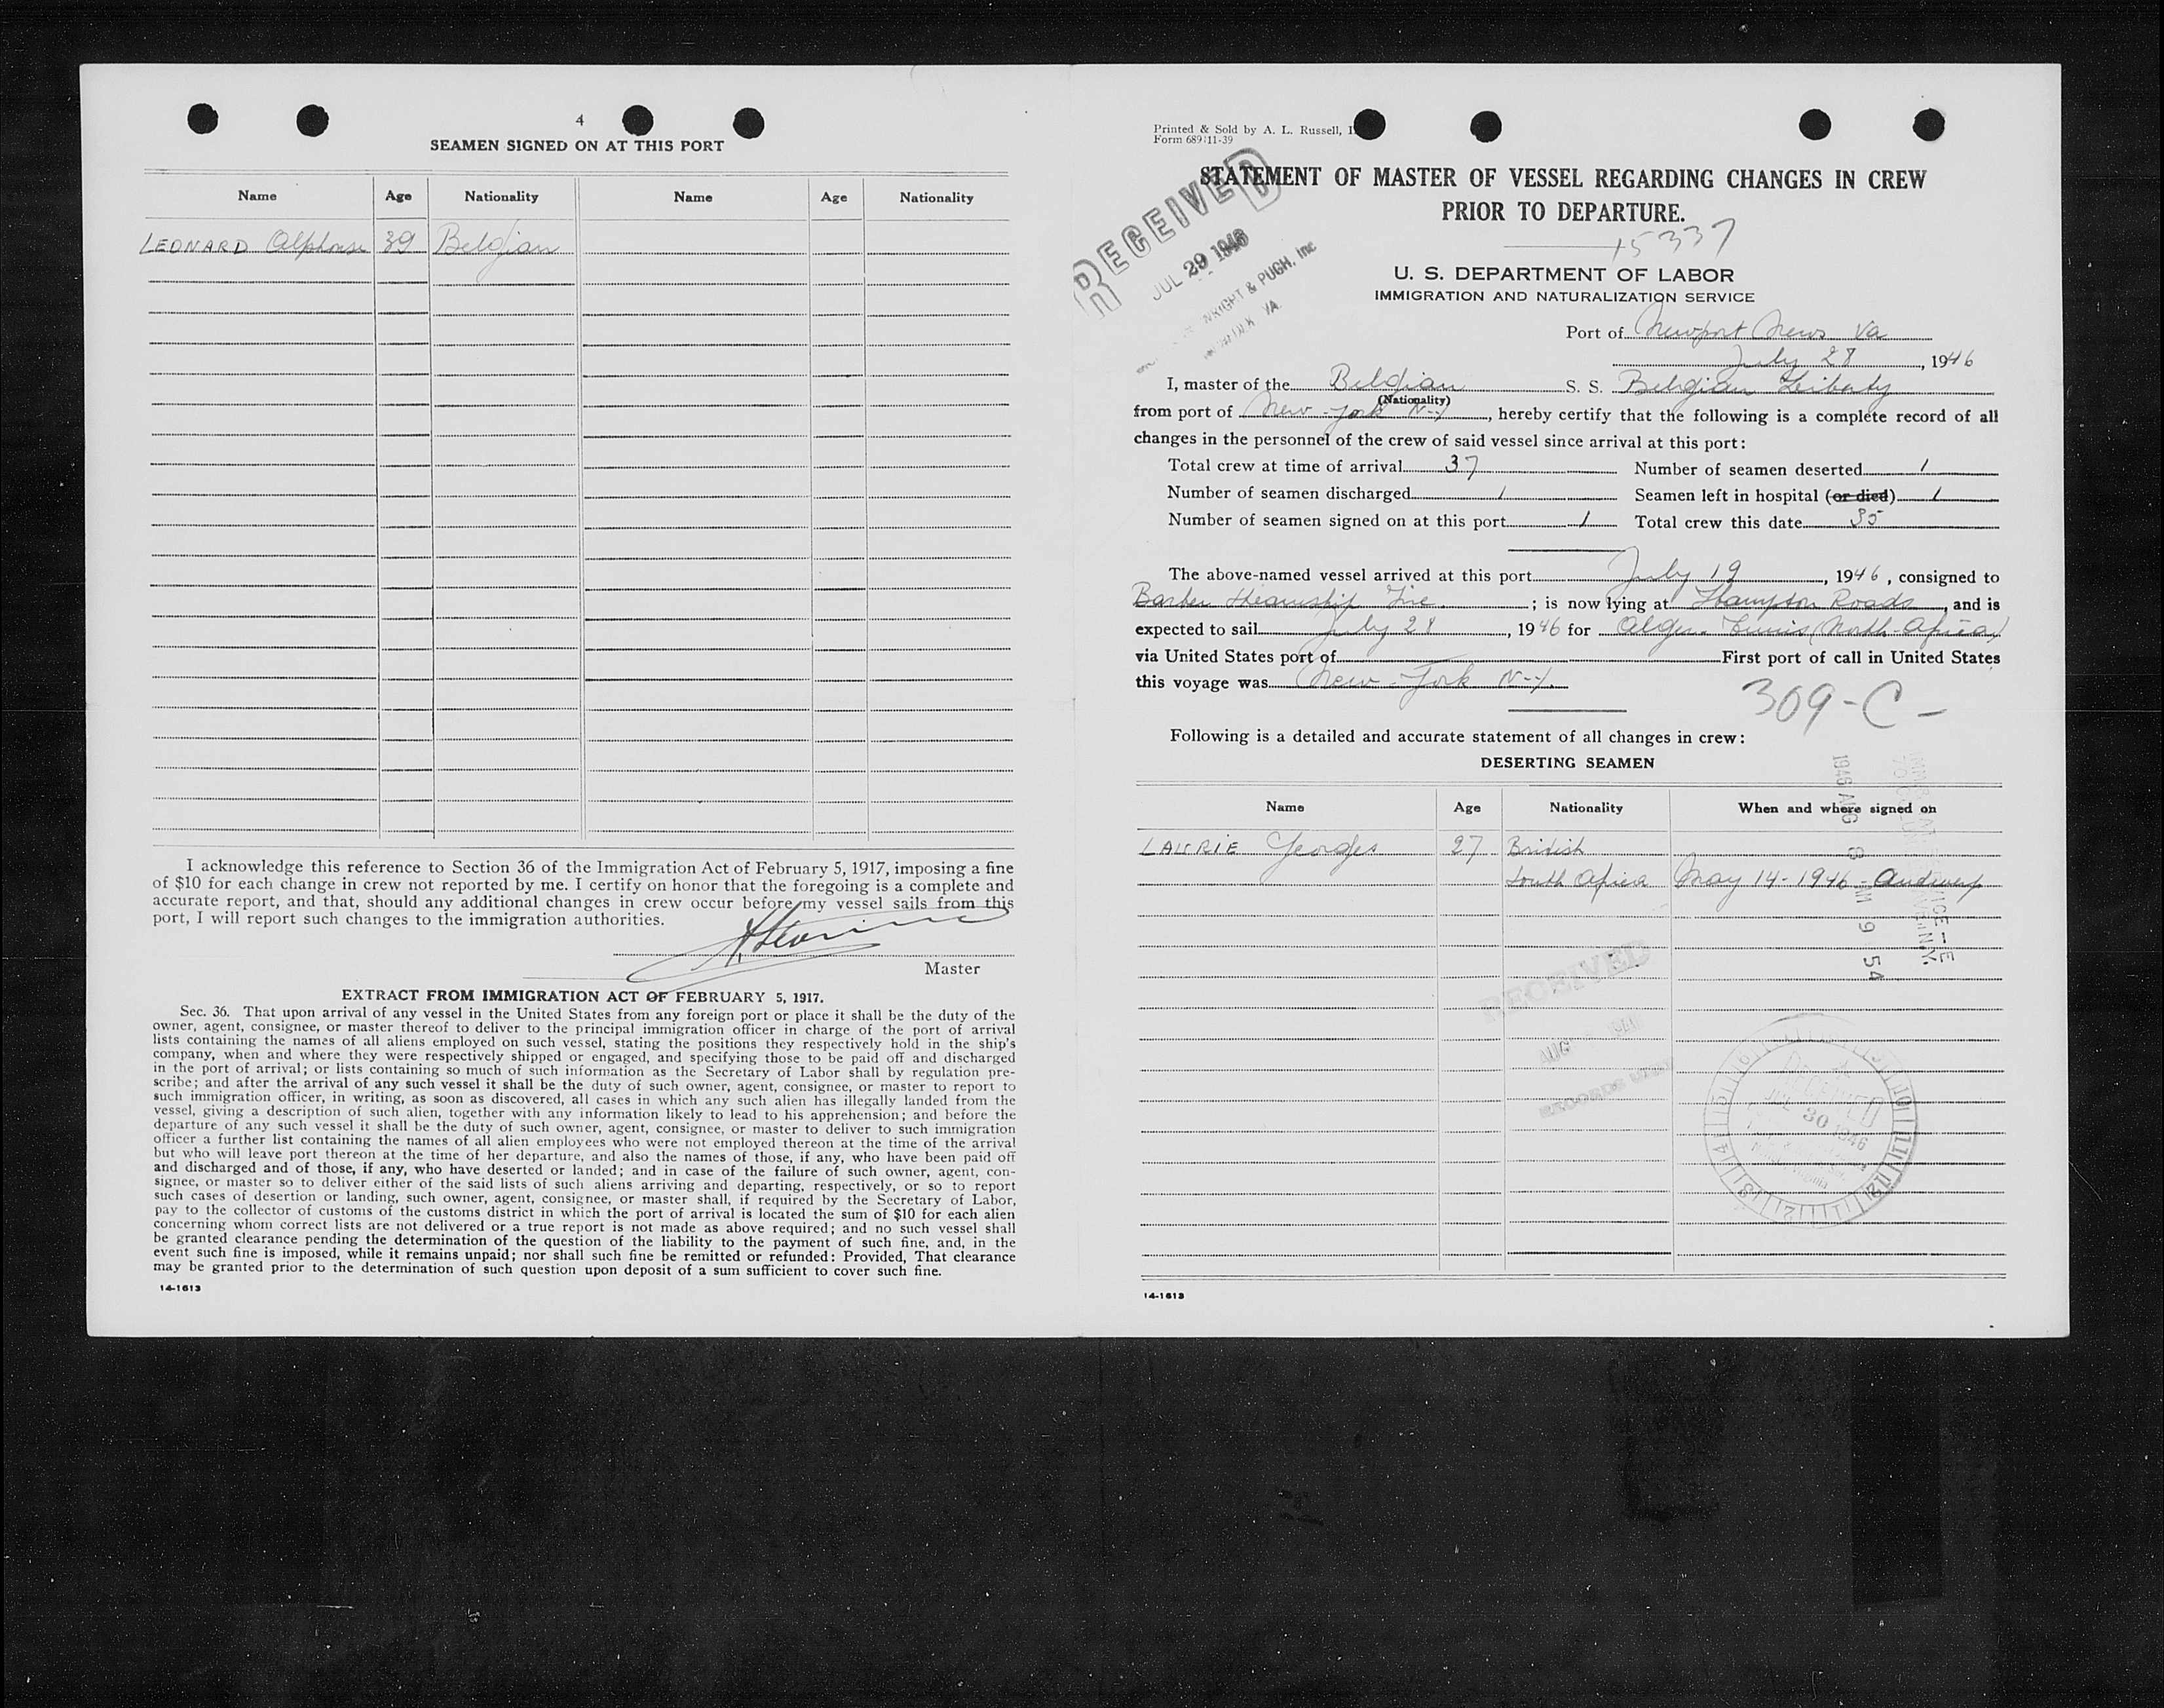 4
SEAMEN SIGNED ON AT THIS PORT
Name Age Nationality Name Age Nationality
LEONARD Alphonse 39 Belgian
I acknowledge this reference to Section 36 of the Immigration Act of February 5, 1917, imposing a fine
of $10 for each change in crew not reported by me. I certify on honor that the foregoing is a complete and
accurate report, and that, should any additional changes in crew occur before my vessel sails from this
port, I will report such changes to the immigration authorities.
Master
EXTRACT FROM IMMIGRATION ACT OF FEBRUARY 5, 1917.
Sec. 36. That upon arrival of any vessel in the United States from any foreign port or place it shall be the duty of the
owner, agent, consignee, or master thereof to deliver to the principal immigration officer in charge of the port of arrival
lists containing the names of all aliens employed on such vessel, stating the positions they respectively hold in the ship's
company, when and where they were respectively shipped or engaged, and specifying those to be paid off and discharged
in the port of arrival; or lists containing so much of such information as the Secretary of Labor shall by regulation pre-
scribe; and after the arrival of any such vessel it shall be the duty of such owner, agent, consignee, or master to report to
such immigration officer, in writing, as soon as discovered, all cases in which any such alien has illegally landed from the
vessel, giving a description of such alien, together with any information likely to lead to his apprehension; and before the
departure of any such vessel it shall be the duty of such owner, agent, consignee, or master to deliver to such immigration
officer a further list containing the names of all alien employees who were not employed thereon at the time of the arrival
but who will leave port thereon at the time of her departure, and also the names of those, if any, who have been paid off
and discharged and of those, if any, who have deserted or landed; and in case of the failure of such owner, agent, con-
signee, or master so to deliver either of the said lists of such aliens arriving and departing, respectively, or so to report
such cases of desertion or landing, such owner, agent, consignee, or master shall, if required by the Secretary of Labor,
pay to the collector of customs of the customs district in which the port of arrival is located the sum of $10 for each alien
concerning whom correct lists are not delivered or a true report is not made as above required; and no such vessel shall
be granted clearance pending the determination of the question of the liability to the payment of such fine, and, in the
event such fine is imposed, while it remains unpaid; nor shall such fine be remitted or refunded: Provided, That clearance
may be granted prior to the determination of such question upon deposit of a sum sufficient to cover such fine.
14-1613
Printed & Sold by A. L. Russell,
Form 689 11-39
STATEMENT OF MASTER OF VESSEL REGARDING CHANGES IN CREW
PRIOR TO DEPARTURE.
RECEIVED
JUL 29 1946
WRIGHT & PUGH, Inc
VA.
15337
U. S. DEPARTMENT OF LABOR
IMMIGRATION AND NATURALIZATION SERVICE
Port of Newport News Va
July 28, 1946
I, master of the Belgian S. S. Belgian Liberty
(Nationality)
from port of New-York N-Y, hereby certify that the following is a complete record of all
changes in the personnel of the crew of said vessel since arrival at this port:
Total crew at time of arrival 37 Number of seamen deserted 1
Number of seamen discharged 1 Seamen left in hospital (or died) 1
Number of seamen signed on at this port 1 Total crew this date 35
The above-named vessel arrived at this port July 19, 1946, consigned to
Barber Steamship Inc. ; is now lying at Hampton Roads, and is
expected to sail July 28, 1946 for Alger-Tunis (North-Africa)
via United States port of First port of call in United States
this voyage was New-York N-Y.
309-C-
Following is a detailed and accurate statement of all changes in crew:
DESERTING SEAMEN
Name Age Nationality When and where signed on
LAURIE Georges 27 British
South Africa May 14-1946 - Andwerp
1946 AUG 8 AM 9 54
RECEIVED
AUG
RECORDS
RECEIVED
JUL 30 1946
14-1613